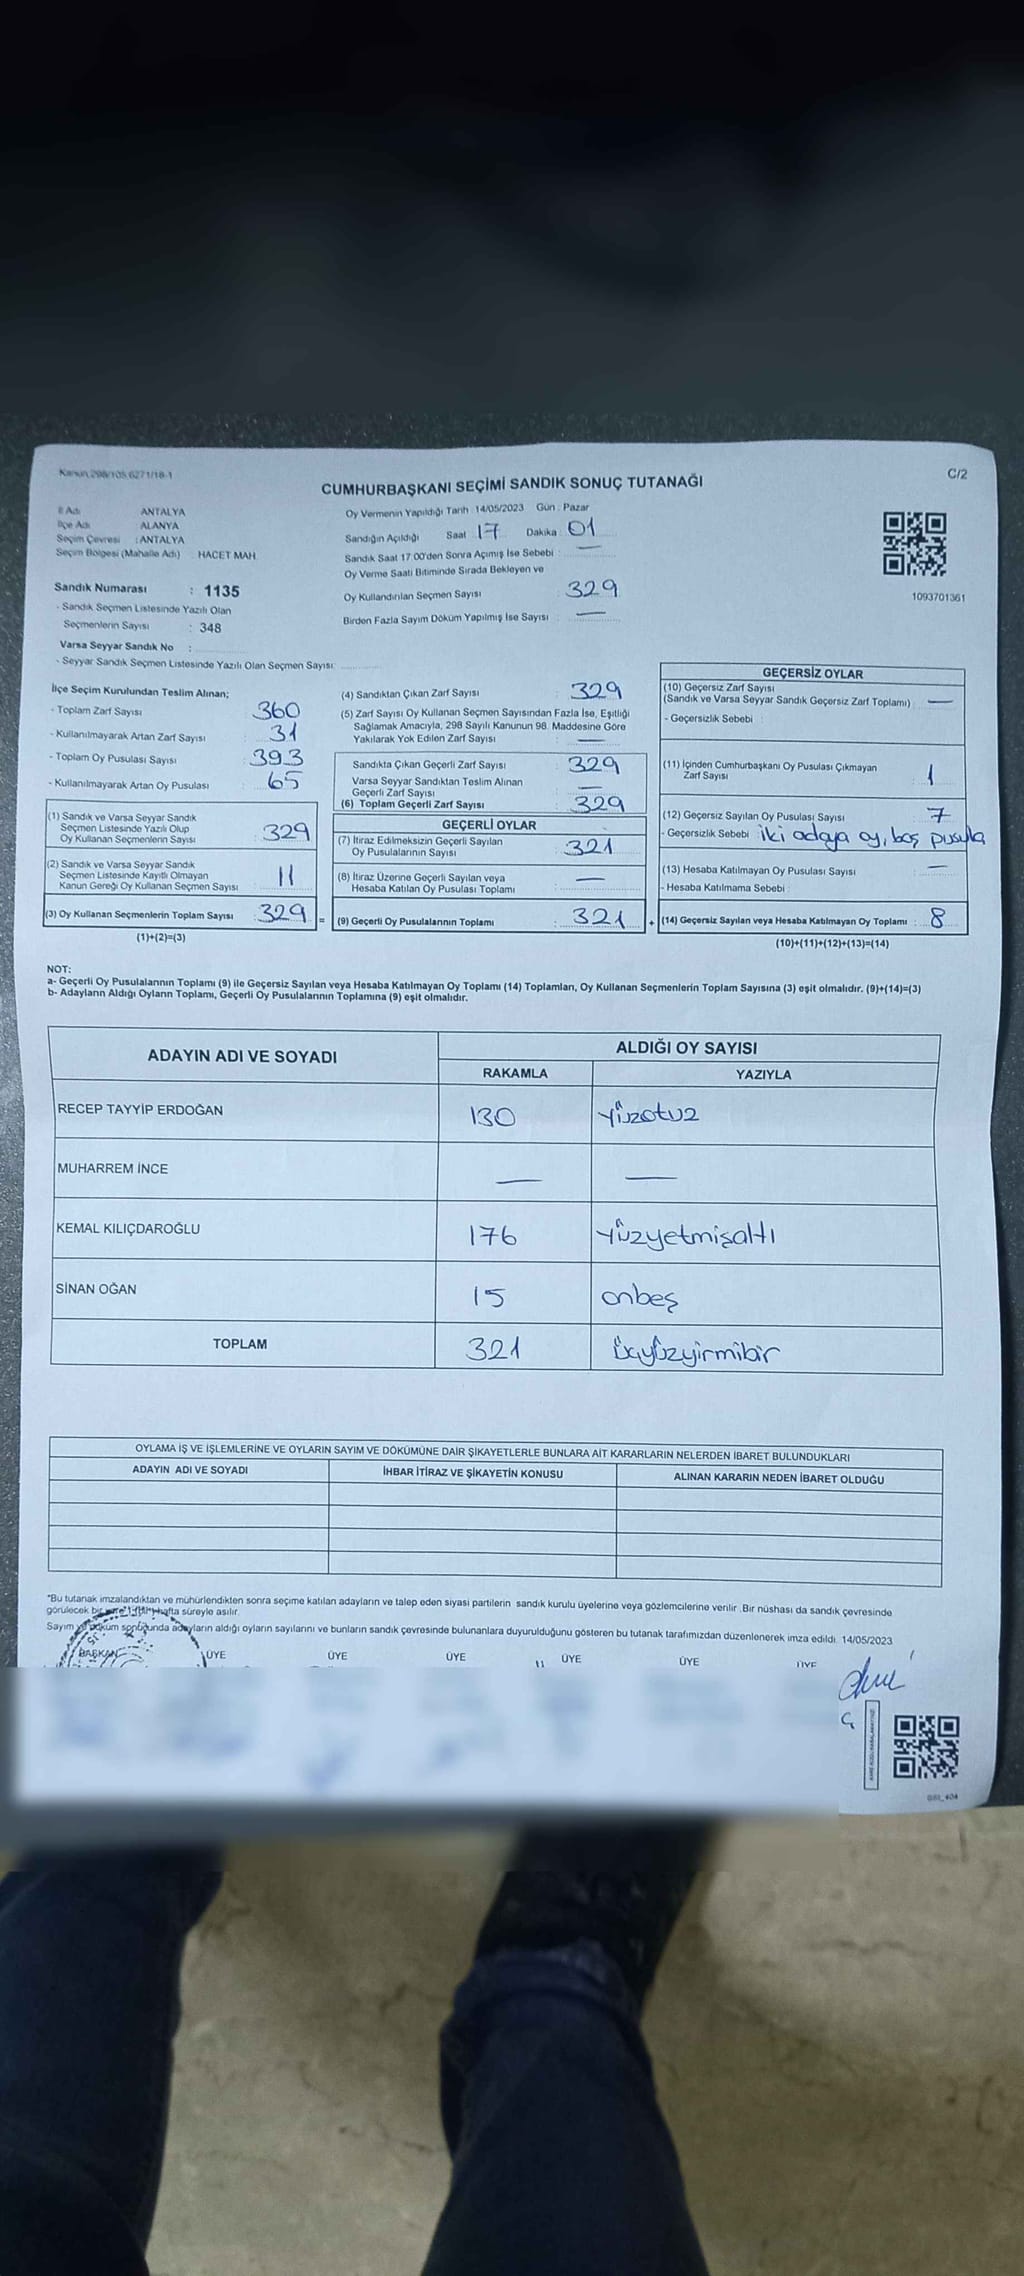 Kanun 298/105 6271/18-1
C/2
CUMHURBAŞKANI SEÇİMİ SANDIK SONUÇ TUTANAĞI
İl Adı ANTALYA
İlçe Adı ALANYA
Seçim Çevresi : ANTALYA
Seçim Bölgesi (Mahalle Adı) HACET MAH.
Sandık Numarası : 1135
- Sandık Seçmen Listesinde Yazılı Olan
Seçmenlerin Sayısı : 348
Varsa Seyyar Sandık No :
- Seyyar Sandık Seçmen Listesinde Yazılı Olan Seçmen Sayısı:
Oy Vermenin Yapıldığı Tarih 14/05/2023 Gün : Pazar
Sandığın Açıldığı Saat 17 Dakika 01
Sandık Saat 17.00'den Sonra Açımış İse Sebebi : —
Oy Verme Saati Bitiminde Sırada Bekleyen ve
Oy Kullandırılan Seçmen Sayısı 329
Birden Fazla Sayım Döküm Yapılmış İse Sayısı —
1093701361
İlçe Seçim Kurulundan Teslim Alınan;
- Toplam Zarf Sayısı 360
- Kullanılmayarak Artan Zarf Sayısı : 31
- Toplam Oy Pusulası Sayısı : 393
- Kullanılmayarak Artan Oy Pusulası : 65
(1) Sandık ve Varsa Seyyar Sandık
Seçmen Listesinde Yazılı Olup
Oy Kullanan Seçmenlerin Sayısı : 329
(2) Sandık ve Varsa Seyyar Sandık
Seçmen Listesinde Kayıtlı Olmayan
Kanun Gereği Oy Kullanan Seçmen Sayısı : 11
(3) Oy Kullanan Seçmenlerin Toplam Sayısı : 329 =
(1)+(2)=(3)
(4) Sandıktan Çıkan Zarf Sayısı : 329
(5) Zarf Sayısı Oy Kullanan Seçmen Sayısından Fazla İse, Eşitliği
Sağlamak Amacıyla, 298 Sayılı Kanunun 98. Maddesine Göre
Yakılarak Yok Edilen Zarf Sayısı : —
Sandıkta Çıkan Geçerli Zarf Sayısı : 329
Varsa Seyyar Sandıktan Teslim Alınan
Geçerli Zarf Sayısı : —
(6) Toplam Geçerli Zarf Sayısı : 329
GEÇERLİ OYLAR
(7) İtiraz Edilmeksizin Geçerli Sayılan
Oy Pusulalarının Sayısı : 321
(8) İtiraz Üzerine Geçerli Sayılan veya
Hesaba Katılan Oy Pusulası Toplamı : —
(9) Geçerli Oy Pusulalarının Toplamı : 321 +
GEÇERSİZ OYLAR
(10) Geçersiz Zarf Sayısı
(Sandık ve Varsa Seyyar Sandık Geçersiz Zarf Toplamı) : —
- Geçersizlik Sebebi :
(11) İçinden Cumhurbaşkanı Oy Pusulası Çıkmayan
Zarf Sayısı : 1
(12) Geçersiz Sayılan Oy Pusulası Sayısı : 7
- Geçersizlik Sebebi iki adaya oy, boş pusula
(13) Hesaba Katılmayan Oy Pusulası Sayısı : —
- Hesaba Katılmama Sebebi
(14) Geçersiz Sayılan veya Hesaba Katılmayan Oy Toplamı : 8
(10)+(11)+(12)+(13)=(14)
NOT:
a- Geçerli Oy Pusulalarının Toplamı (9) ile Geçersiz Sayılan veya Hesaba Katılmayan Oy Toplamı (14) Toplamları, Oy Kullanan Seçmenlerin Toplam Sayısına (3) eşit olmalıdır. (9)+(14)=(3)
b- Adayların Aldığı Oyların Toplamı, Geçerli Oy Pusulalarının Toplamına (9) eşit olmalıdır.
ADAYIN ADI VE SOYADI ALDIĞI OY SAYISI
RAKAMLA YAZIYLA
RECEP TAYYİP ERDOĞAN 130 Yüzotuz
MUHARREM İNCE — —
KEMAL KILIÇDAROĞLU 176 Yüzyetmişaltı
SİNAN OĞAN 15 onbeş
TOPLAM 321 üçyüzyirmibir
OYLAMA İŞ VE İŞLEMLERİNE VE OYLARIN SAYIM VE DÖKÜMÜNE DAİR ŞİKAYETLERLE BUNLARA AİT KARARLARIN NELERDEN İBARET BULUNDUKLARI
ADAYIN ADI VE SOYADI İHBAR İTİRAZ VE ŞİKAYETİN KONUSU ALINAN KARARIN NEDEN İBARET OLDUĞU
*Bu tutanak imzalandıktan ve mühürlendikten sonra seçime katılan adayların ve talep eden siyasi partilerin sandık kurulu üyelerine veya gözlemcilerine verilir. Bir nüshası da sandık çevresinde
görülecek bir hafta süreyle asılır.
Sayım ve döküm sonucunda adayların aldığı oyların sayılarını ve bunların sandık çevresinde bulunanlara duyurulduğunu gösteren bu tutanak tarafımızdan düzenlenerek imza edildi. 14/05/2023
BAŞKAN ÜYE ÜYE ÜYE ÜYE ÜYE ÜYE